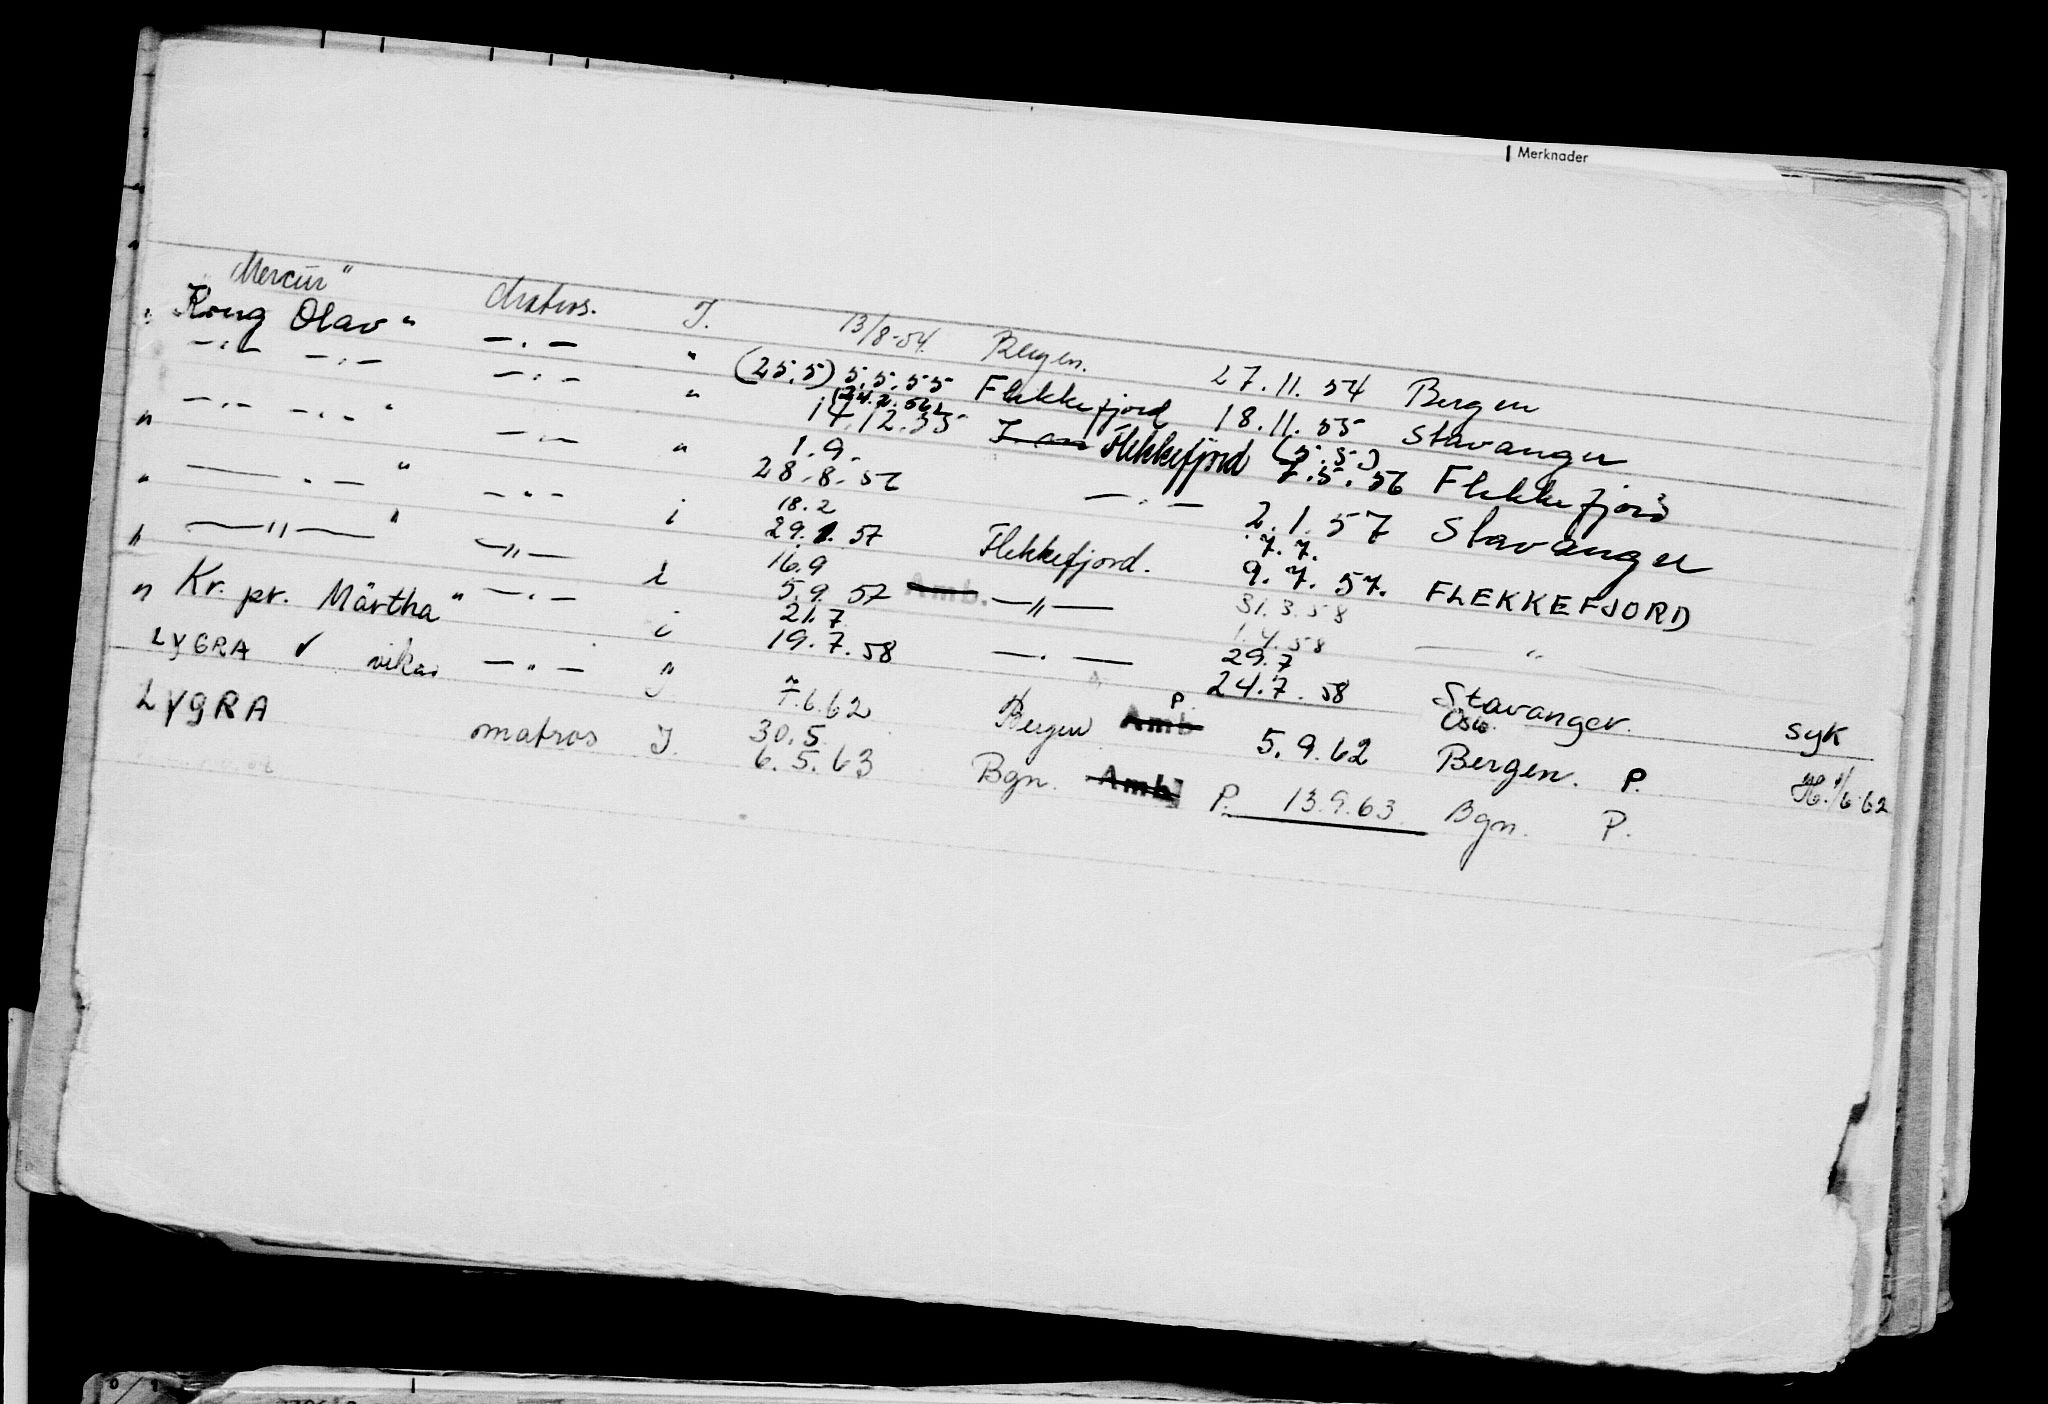 Merknader
"Mercur" Matros. J. 13/8-54. Bergen. 27.11.54 Bergen
"Kong Olav" — . — " (25.5) 5.5.55 Flekkefjord 18.11.55 Stavanger
— . — — . — — . — " (24.2.56)
14.12.55 Flekkefjord (5.5.) 7.5.56 Flekkefjord
— . — — . — " — . — " 1.9.
28.8.56 — . — 2.1.57 Stavanger
" —— . — " — . — i 18.2
29.1.57 Flekkefjord. 7.7.
9.7.57. FLEKKEFJORD
" —— . — " —"— i 16.9
5.9.57 Amb. —"— 31.3.58
1.4.58 —— " ——
" ——"—— " — . — i 21.7
19.7.58 — . — 29.7
24.7.58 Stavanger. syk
" Kr. pr. Märtha" — . — "
LYGRA ✓ vikar — " — J. 7.6.62 Bergen Amb P. 5.9.62 Oslo.
Bergen. P. 1/6-62
LYGRA matros J. 30.5
6.5.63 Bgn. Amb P. 13.9.63 Bgn. P.